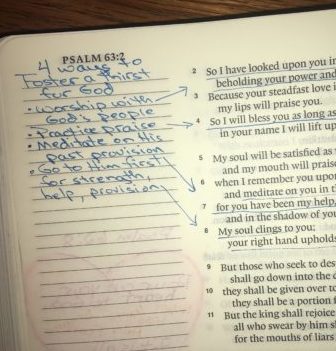 PSALM 63:2
4 ways to
Foster a Thirst
for God
• worship with
God's people
• Practice praise
• Meditate on His
past provision
• Go to Him first
for strength,
help, provision
2 So I have looked upon you in
beholding your power and
3 Because your steadfast love i
my lips will praise you.
4 So I will bless you as long as
in your name I will lift up
5 My soul will be satisfied as
and my mouth will praise
6 when I remember you upon
and meditate on you in t
7 for you have been my help,
and in the shadow of you
8 My soul clings to you;
your right hand uphold
9 But those who seek to des
shall go down into the d
10 they shall be given over to
they shall be a portion f
11 But the king shall rejoice
all who swear by him sh
for the mouths of liars